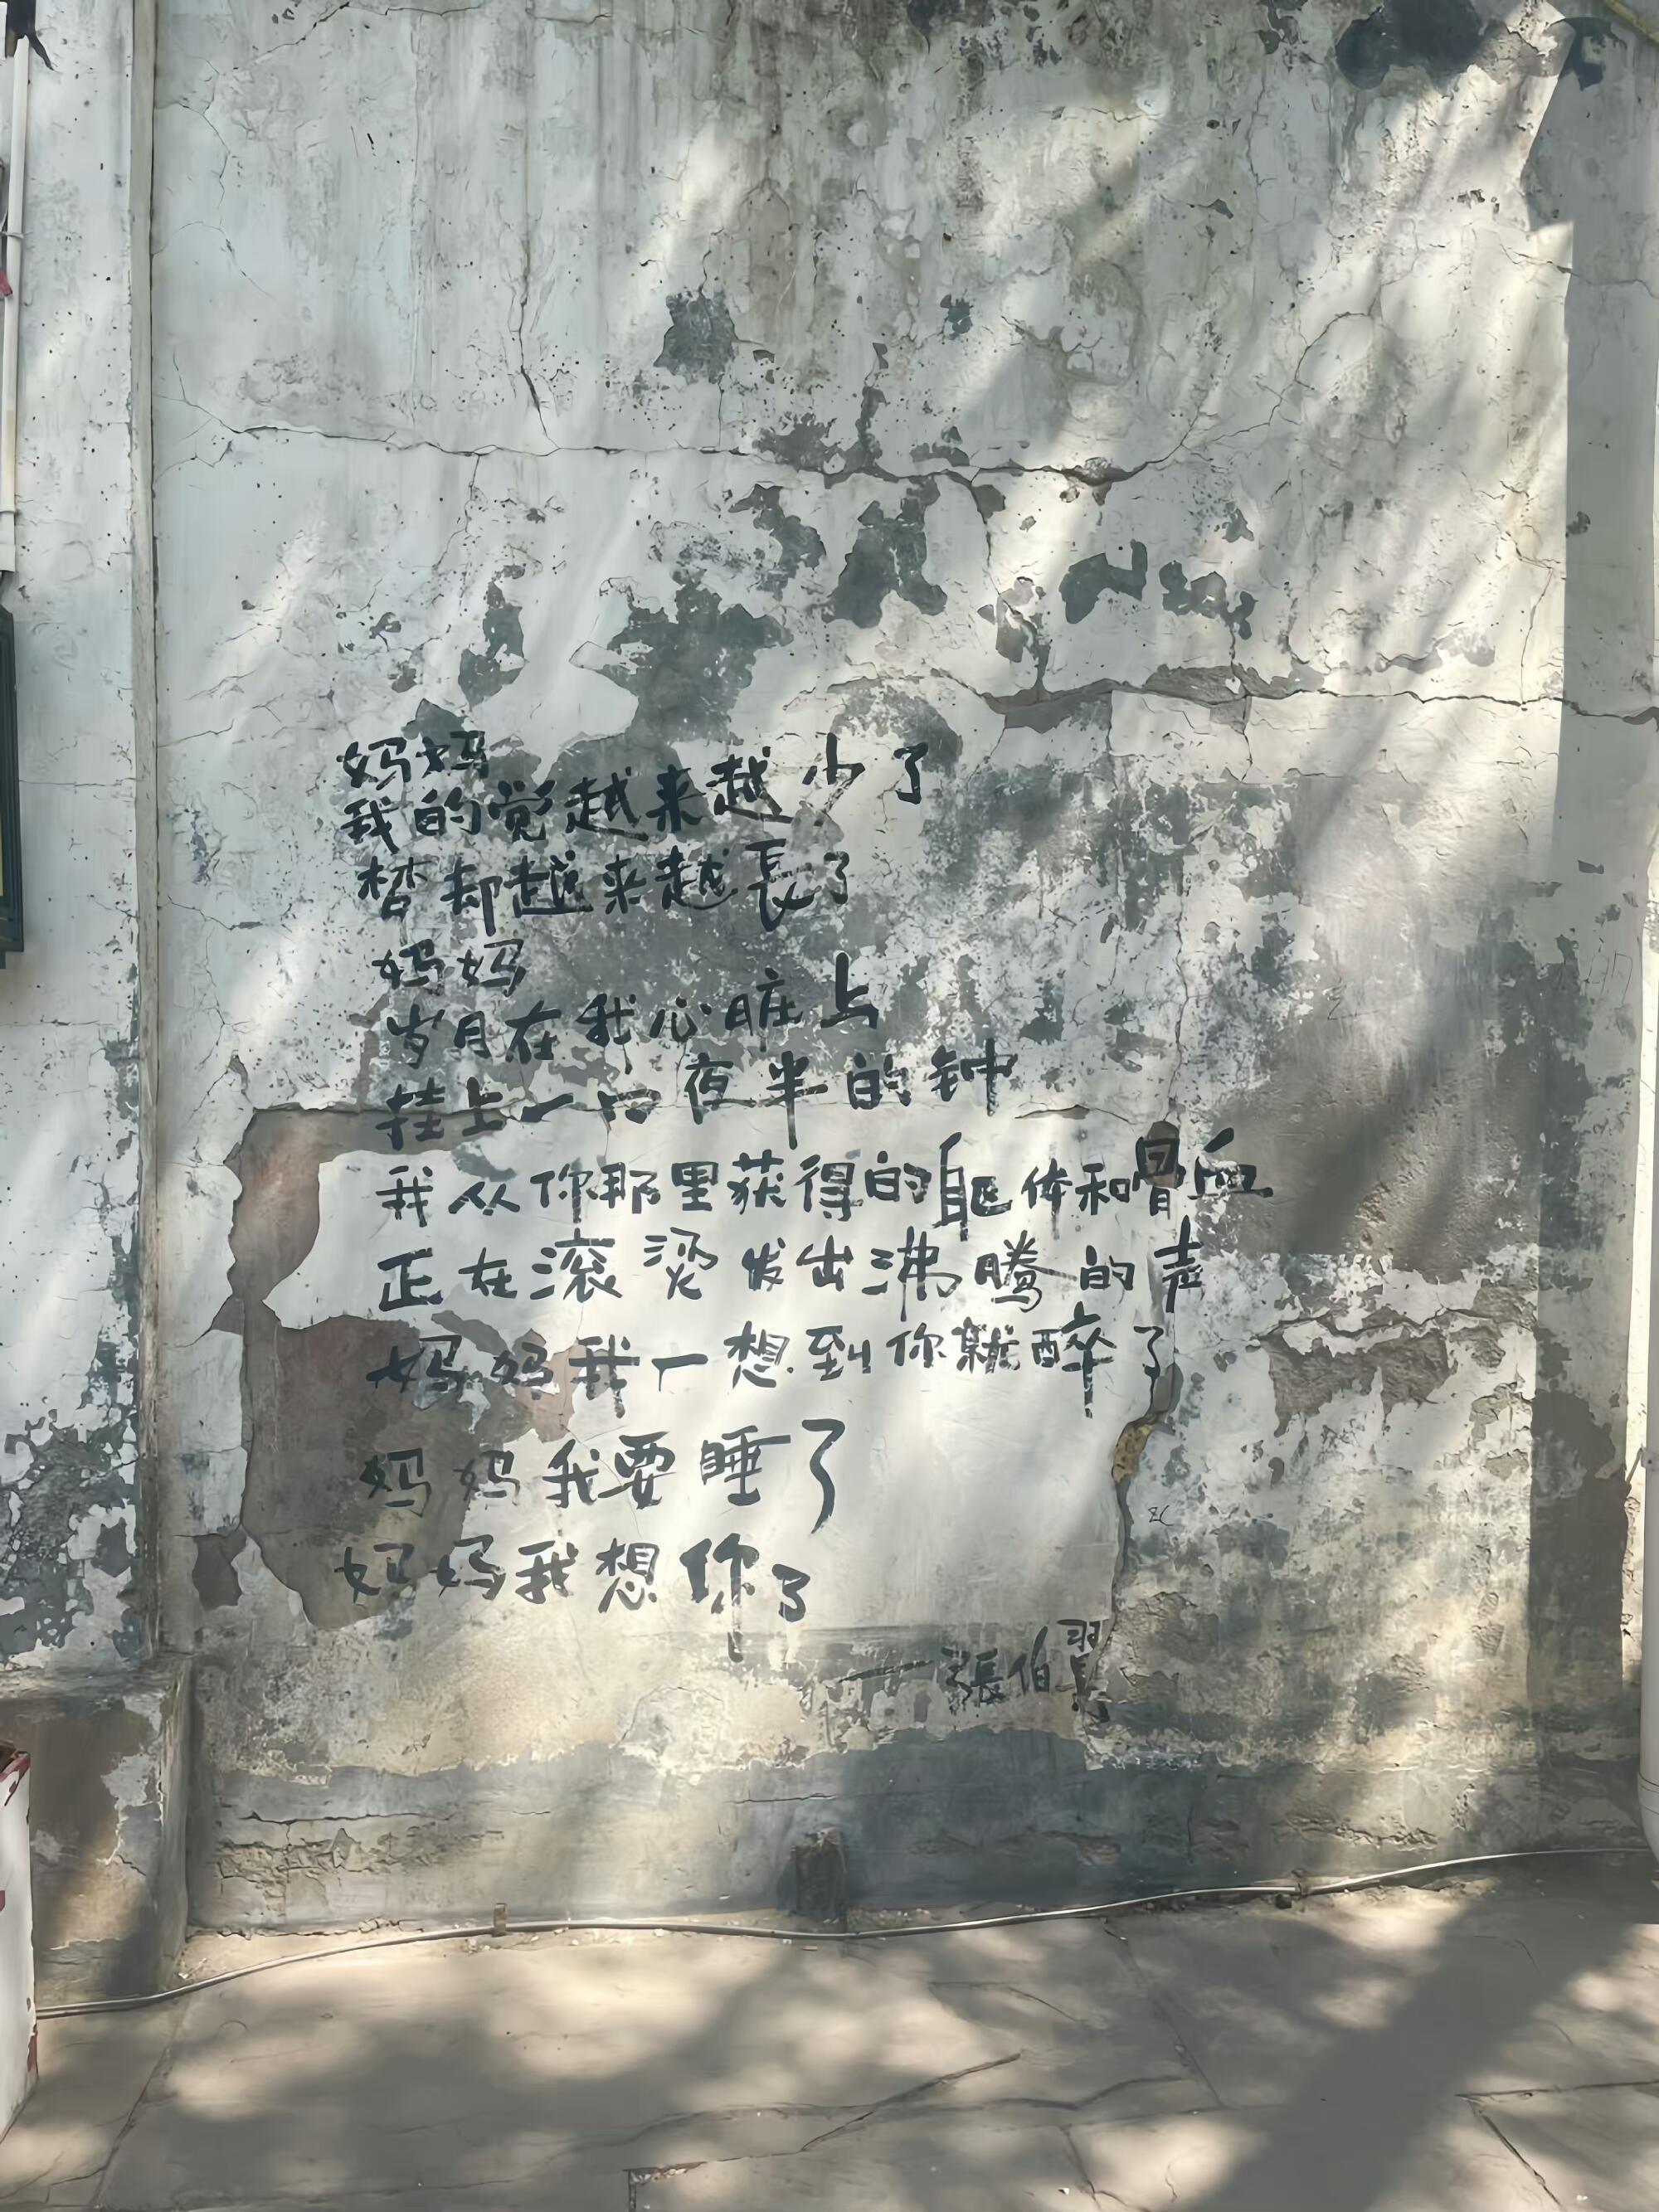 妈妈
我的觉越来越少了
梦却越来越長了
妈妈
岁月在我心脏上
挂上一口夜半的钟
我从你那里获得的躯体和骨血
正在滚烫发出沸腾的声
妈妈我一想到你就醉了
妈妈我要睡了
妈妈我想你了
——張伯翼